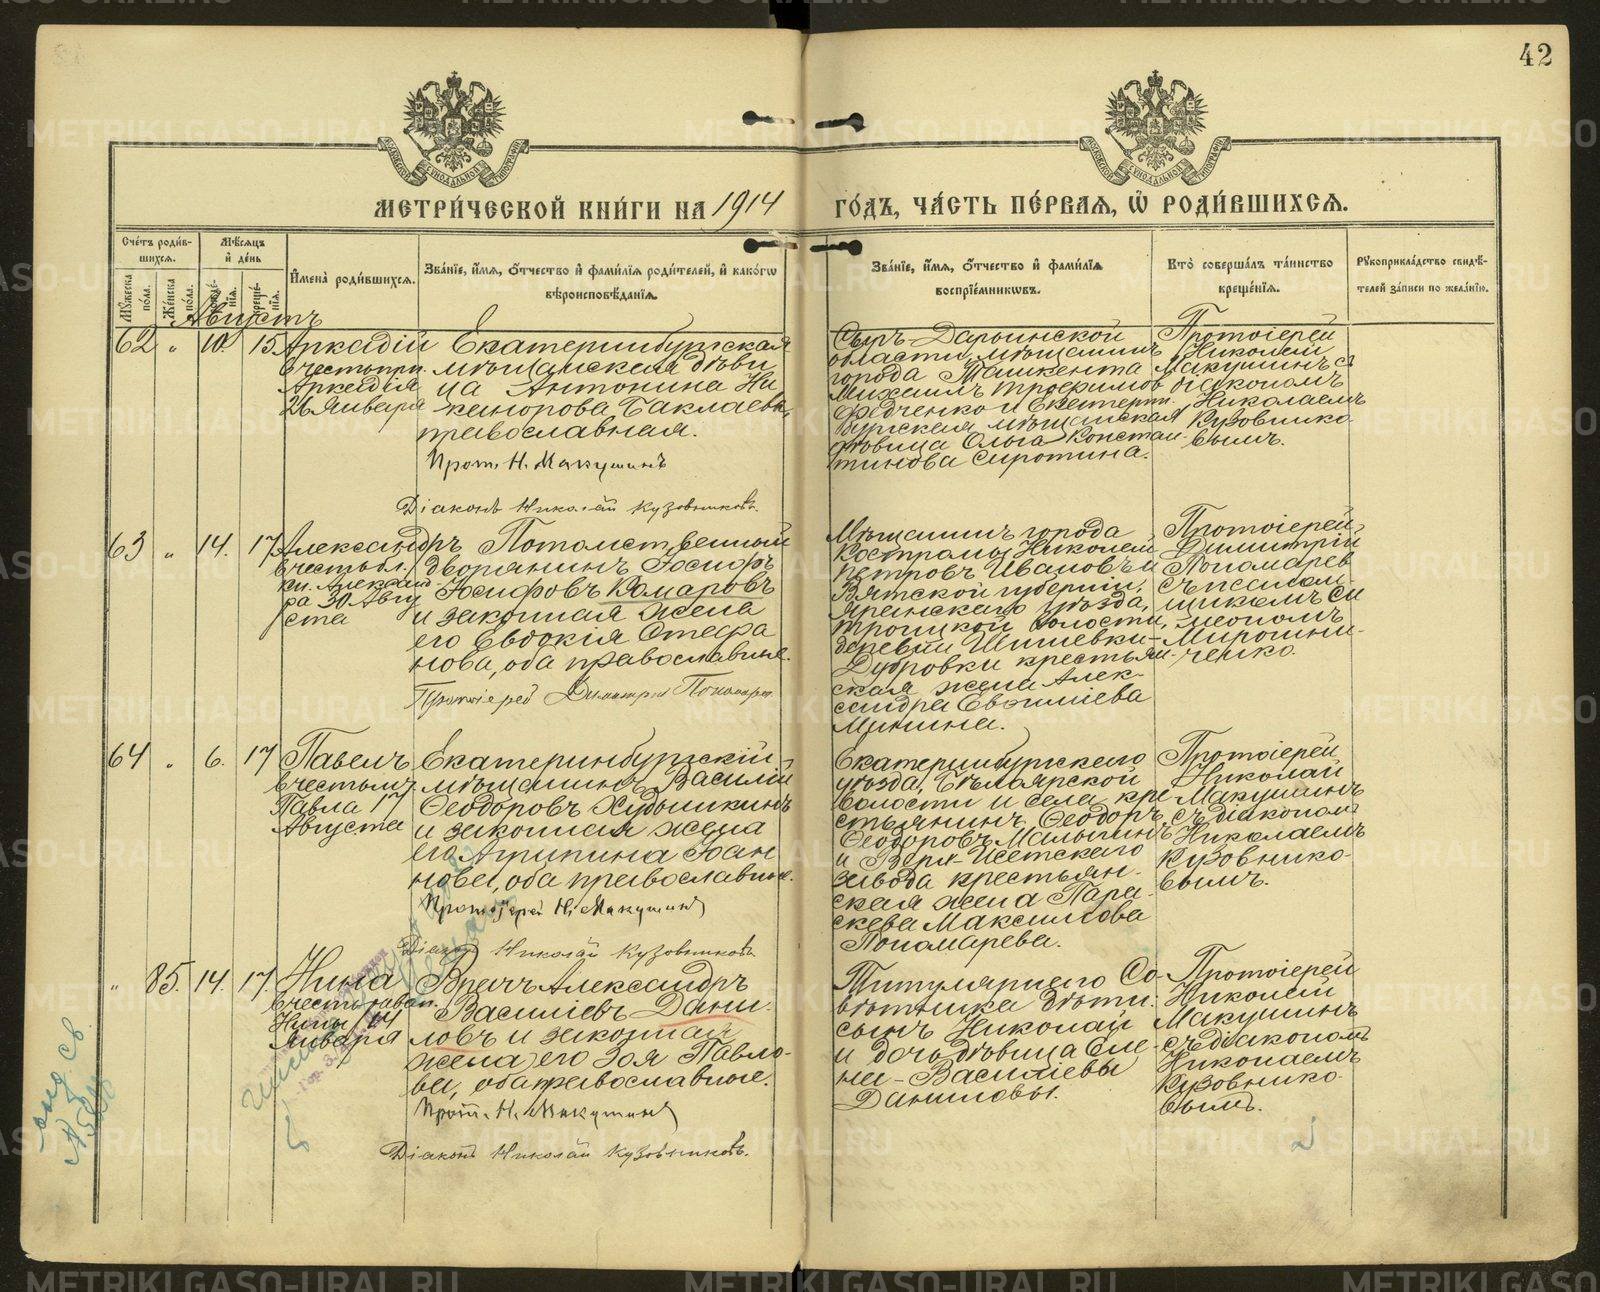 42
МЕТРИ́ЧЕСКОЙ КНИ́ГИ НА 1914 ГО́ДЪ, ЧА́СТЬ ПЕ́РВАЯ, Ѡ РОДИ́ВШИХСЯ.
Сче́тъ роди́в-
шихся.
Мѣ́сяцъ
и҆ де́нь
Мꙋ́жеска
по́ла.
Же́нска
по́ла.
И҆мена̀ роди́вшихся.
Зва́нїе, и҆́мя, ѻ҆́тчество и҆ фами́лїя роди́телей, и҆ како́гѡ
вѣроисповѣ́данїя.
Зва́нїе, и҆́мя, ѻ҆́тчество и҆ фами́лїя
воспрїе́мникѡвъ.
Кто̀ соверша́лъ та́инство
креще́нїя.
Рꙋкоприкла́дство свидѣ́-
телей за́писи по жела́нїю.
Августъ
62 „ 10. 15
Аркадій
в честь прп.
Аркадія
26 Января
Екатеринбургская
мѣщанская дѣви
ца Антонина Ни
канорова Баклаева,
православная.
Прот. Н. Макушинъ
Діаконъ Николай Кузовниковъ.
Сыръ-Дарьинской
области, мѣщанинъ
города Ташкента
Михаилъ Трофимовъ
Федченко и Екатерин
бургская мѣщанская
дѣвица Ольга Констан-
тинова Сиротина.
Протоіерей
Николай
Макушинъ съ
діакономъ
Николаемъ
Кузовнико-
вымъ.
63 „ 14. 17
Александръ
в честь бл.
кн. Александ
ра 30 Авгу
ста
Потомственный
дворянинъ Іосифъ
Іосифовъ Комаровъ
и законная жена
его Евдокія Стефа
нова, оба православные.
Протоіерей Димитрій Пономарев
Мѣщанинъ города
Костромы Николай
Петровъ Ивановъ и
Вятской губерніи,
Яранскаго уѣзда,
Троицкой волости,
деревни
Дубровки крестьян-
ская жена Алек-
сандра
Минина.
Протоіерей
Димитрій
Пономарев
съ псалом-
щикомъ Си
меономъ
Мирошни-
ченко.
64 „ 6. 17
Павелъ
в честь муч.
Павла 17
Августа
Екатеринбургскій
мѣщанинъ Василій
Ѳеодоровъ Худышкинъ
и законная жена
его Агрипина Іоан
нова, оба православные.
Протоіерей Н. Макушинъ
Діаконъ Николай Кузовниковъ
Екатеринбургскаго
уѣзда, Бѣлоярской
волости и села кре
стьянинъ Ѳеодоръ
Ѳеодоровъ Малыгинъ
и Верх-Исетскаго
завода крестьян-
ская жена Пара-
скева Максимова
Пономарева.
Протоіерей
Николай
Макушинъ
съ діакономъ
Николаемъ
Кузовнико-
вымъ.
„ 85. 14. 17
Нина
в честь равноап.
Нины 14
Января
Врачъ Александръ
Василіевъ Дани-
ловъ и законная
жена его Зоя Павло-
ва, оба православные.
Прот. Н. Макушинъ
Діаконъ Николай Кузовниковъ.
Титулярнаго Со-
вѣтника дѣти:
сынъ Николай
и дочь дѣвица Еле-
на - Василіевы
Даниловы.
Протоіерей
Николай
Макушинъ
съ діакономъ
Николаемъ
Кузовнико-
вымъ.
METRIKI.GASO-URAL.RU